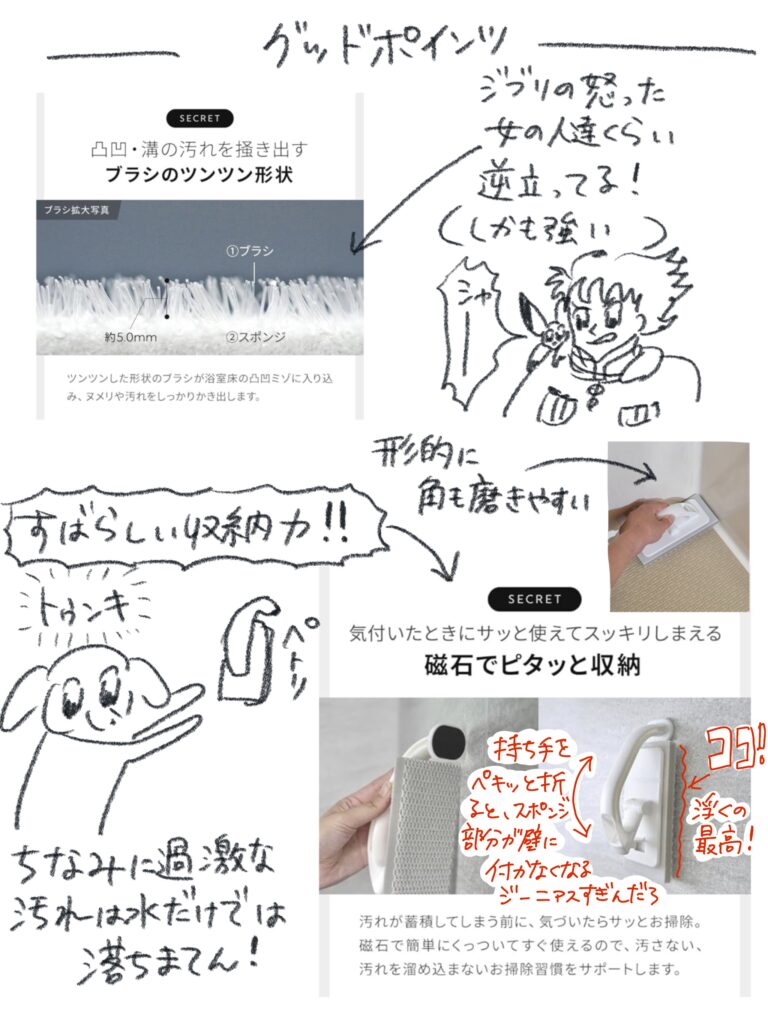 グッドポインツ
SECRET
凸凹・溝の汚れを掻き出す
ブラシのツンツン形状
ブラシ拡大写真
①ブラシ
約5.0mm
②スポンジ
ツンツンした形状のブラシが浴室床の凸凹ミゾに入り込
み、ヌメリや汚れをしっかりかき出します。
ジブリの怒った
女の人達くらい
逆立ってる!
(しかも強い)
シャーー
形的に
角も磨きやすい
すばらしい収納力!!
トゥンキ
ペトリ
SECRET
気付いたときにサッと使えてスッキリしまえる
磁石でピタッと収納
持ち手を
ペキッと折
ると、スポンジ
部分が壁に
付かなくなる
ジーニアスすぎんだろ
ココ!
浮くの
最高!
汚れが蓄積してしまう前に、気づいたらサッとお掃除。
磁石で簡単にくっついてすぐ使えるので、汚さない、
汚れを溜め込まないお掃除習慣をサポートします。
ちなみに過激な
汚れは水だけでは
落ちまてん!